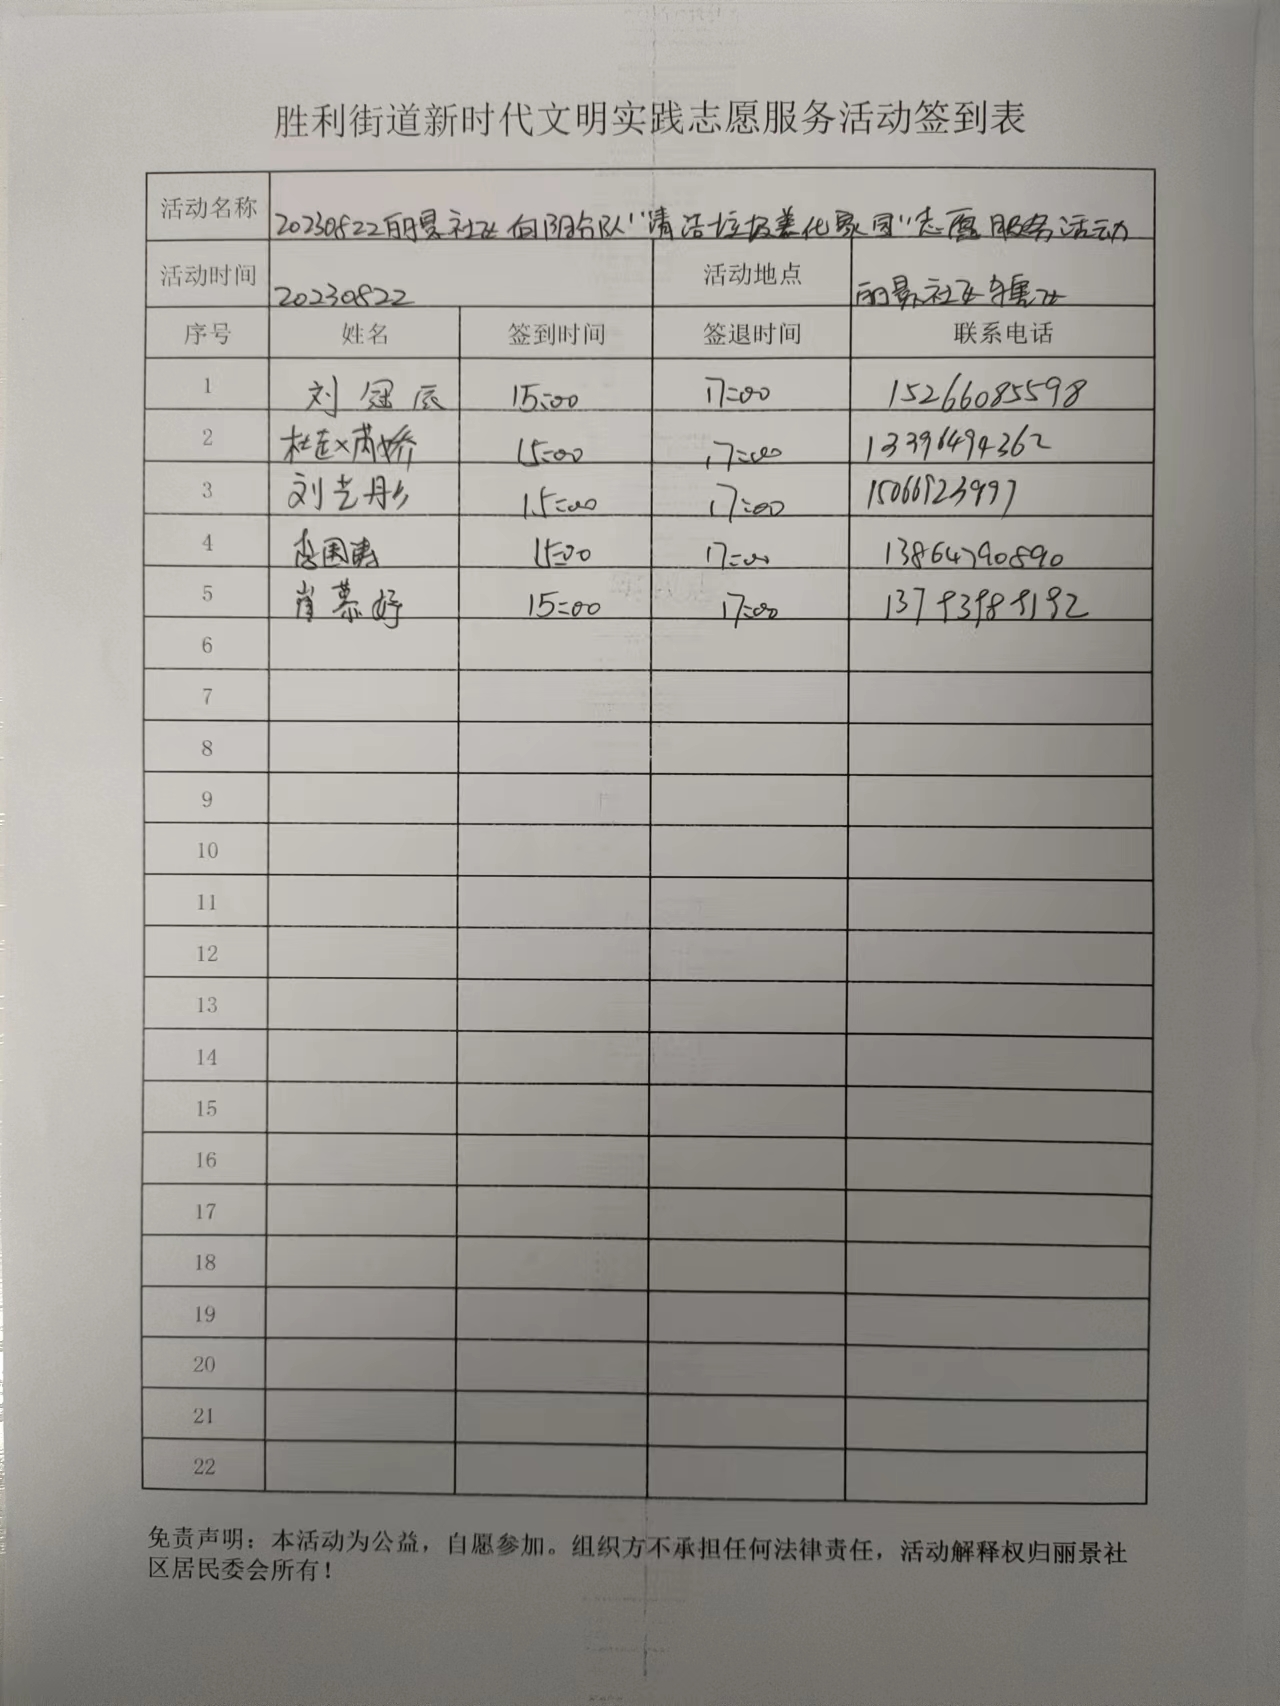 胜利街道新时代文明实践志愿服务活动签到表
活动名称 20230822丽景社区向阳分队“清洁垃圾美化家园”志愿服务活动
活动时间 20230822 活动地点 丽景社区辖区
序号 姓名 签到时间 签退时间 联系电话
1 刘冠辰 15:00 17:00 15266085598
2 15:00 17:00 13396494362
3 刘艺彤 15:00 17:00
4 李国涛 15:00 17:00 13864790890
5 肖慕婷 15:00 17:00
6
7
8
9
10
11
12
13
14
15
16
17
18
19
20
21
22
免责声明：本活动为公益，自愿参加。组织方不承担任何法律责任，活动解释权归丽景社
区居民委会所有！